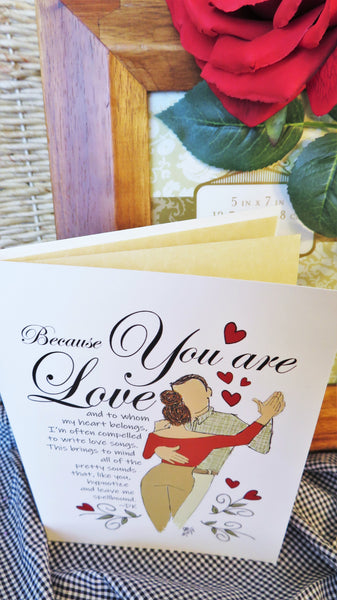 5 IN X 7 IN
Because You are
Love
and to whom
my heart belongs,
I'm often compelled
to write love songs.
This brings to mind
all of the
pretty sounds
that, like you,
hypnotize
and leave me
spellbound.
-DK